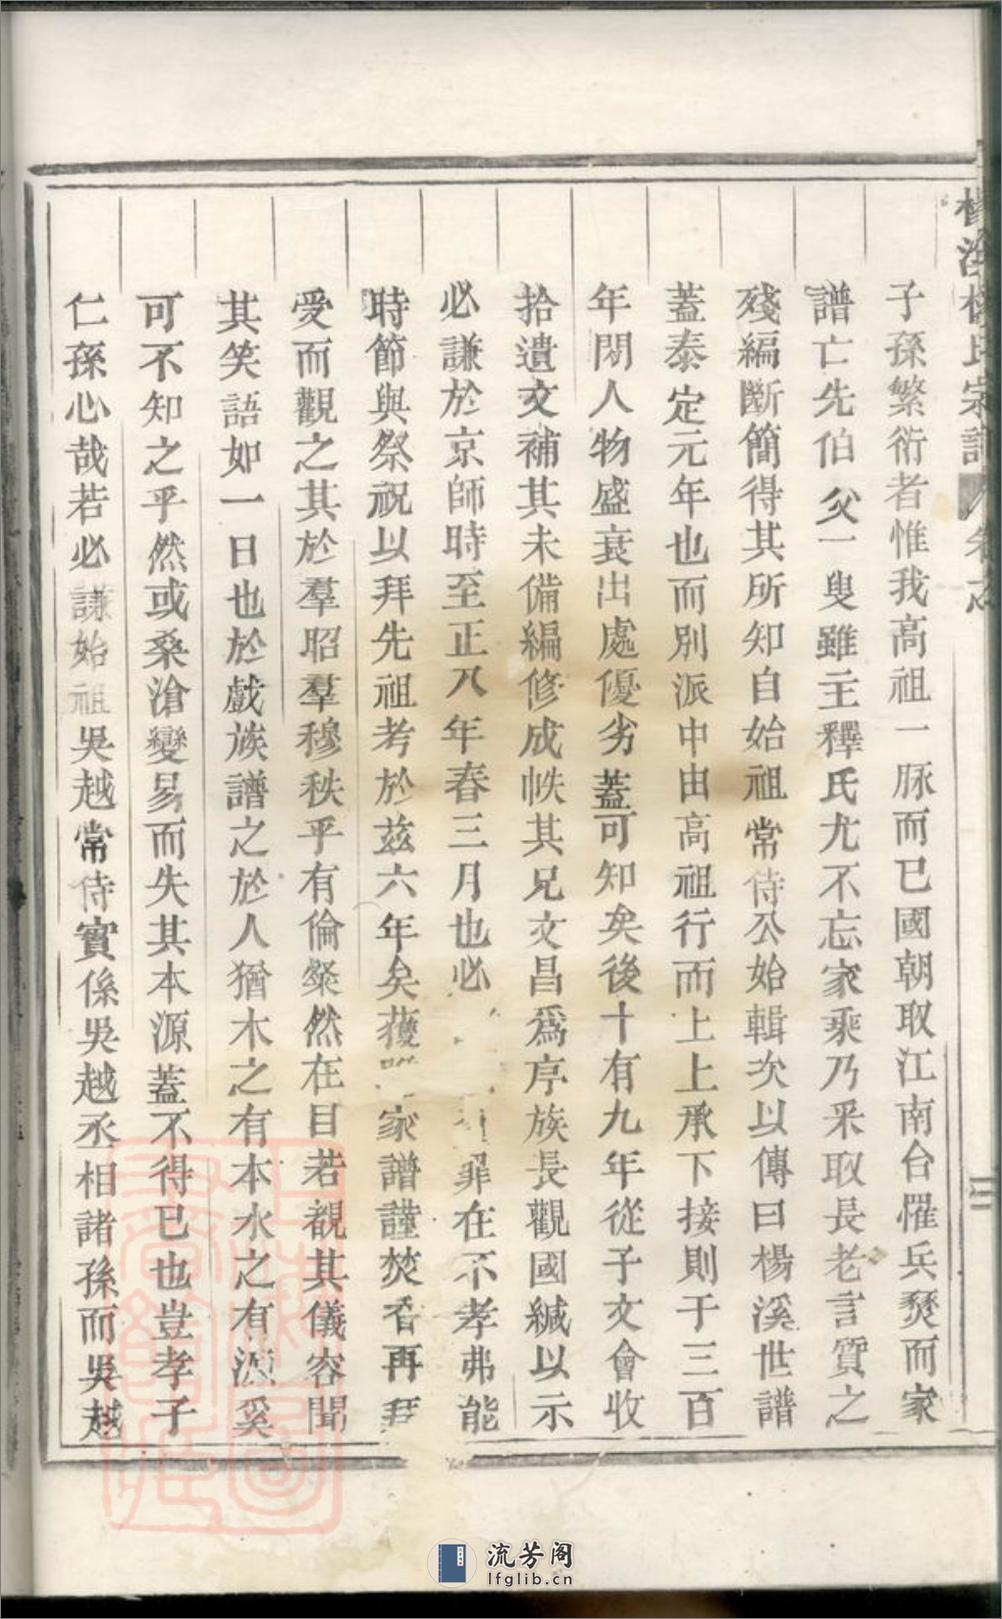 子孫繁衍者惟我高祖一脉而已國朝取江南台罹兵燹而家
譜亡先伯父一叟雖主釋氏尤不忘家乘乃采取長老言質之
殘編斷簡得其所知自始祖常侍公始輯次以傳曰楊溪世譜
蓋泰定元年也而別派中由高祖行而上上承下接則于三百
年閒人物盛衰出處優劣蓋可知矣後十有九年從子文會收
拾遺文補其未備編修成帙其兄文昌爲序族長觀國緘以示
必謙於京師時至正八年春三月也必罪在不孝弗能
時節與祭祝以拜先祖考於茲六年矣獲家譜謹焚香再拜
受而觀之其於羣昭羣穆秩乎有倫粲然在目若覩其儀容聞
其笑語如一日也於戲族譜之於人猶木之有本水之有源奚
可不知之乎然或桑滄變易而失其本源蓋不得已也豈孝子
仁孫心哉若必謙始祖吳越常侍實係吳越丞相諸孫而吳越
流芳阁
lfglib.cn